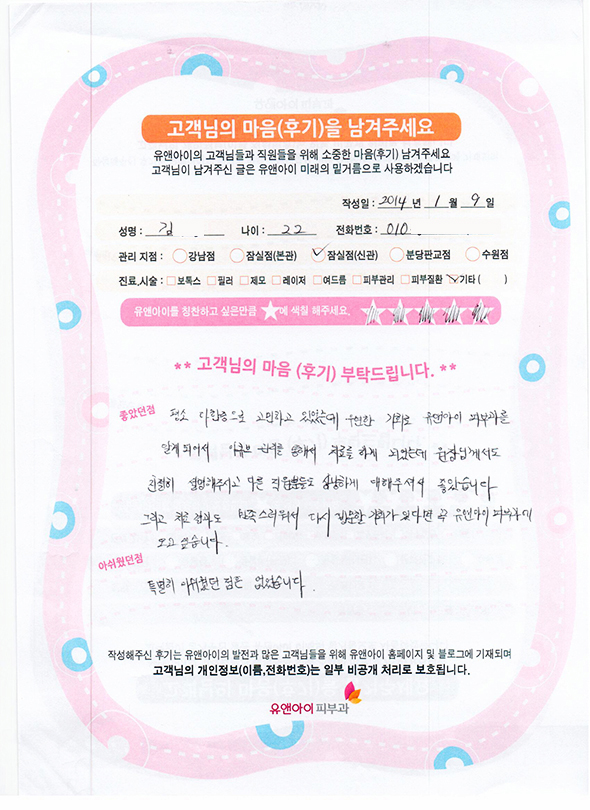 고객님의 마음(후기)을 남겨주세요
유앤아이의 고객님들과 직원들을 위해 소중한 마음(후기) 남겨주세요
고객님이 남겨주신 글은 유앤아이 미래의 밑거름으로 사용하겠습니다
작성일 : 2014 년 1 월 9 일
성명 : 김 나이 : 22 전화번호 : 010
관리 지점 : 강남점 잠실점(본관) 잠실점(신관) 분당판교점 수원점
진료,시술 : 보톡스 필러 제모 레이저 여드름 피부관리 피부질환 기타 ( )
유앤아이를 칭찬하고 싶은만큼 ★에 색칠 해주세요.
** 고객님의 마음 (후기) 부탁드립니다. **
좋았던점 평소 다한증으로 고민하고 있었는데 우연한 기회로 유앤아이 피부과를
알게 되어서 통해서 치료를 하게 되었는데 원장님께서도
친절히 설명해주시고 다른 직원분들도 상냥하게 대해주셔서 좋았습니다
그리고 치료 결과도 만족스러워서 다시 방문할 기회가 있다면 꼭 유앤아이 피부과에
오고 싶습니다.
아쉬웠던점
특별히 아쉬웠던 점은 없었습니다.
작성해주신 후기는 유앤아이의 발전과 많은 고객님들을 위해 유앤아이 홈페이지 및 블로그에 기재되며
고객님의 개인정보(이름,전화번호)는 일부 비공개 처리로 보호됩니다.
유앤아이피부과